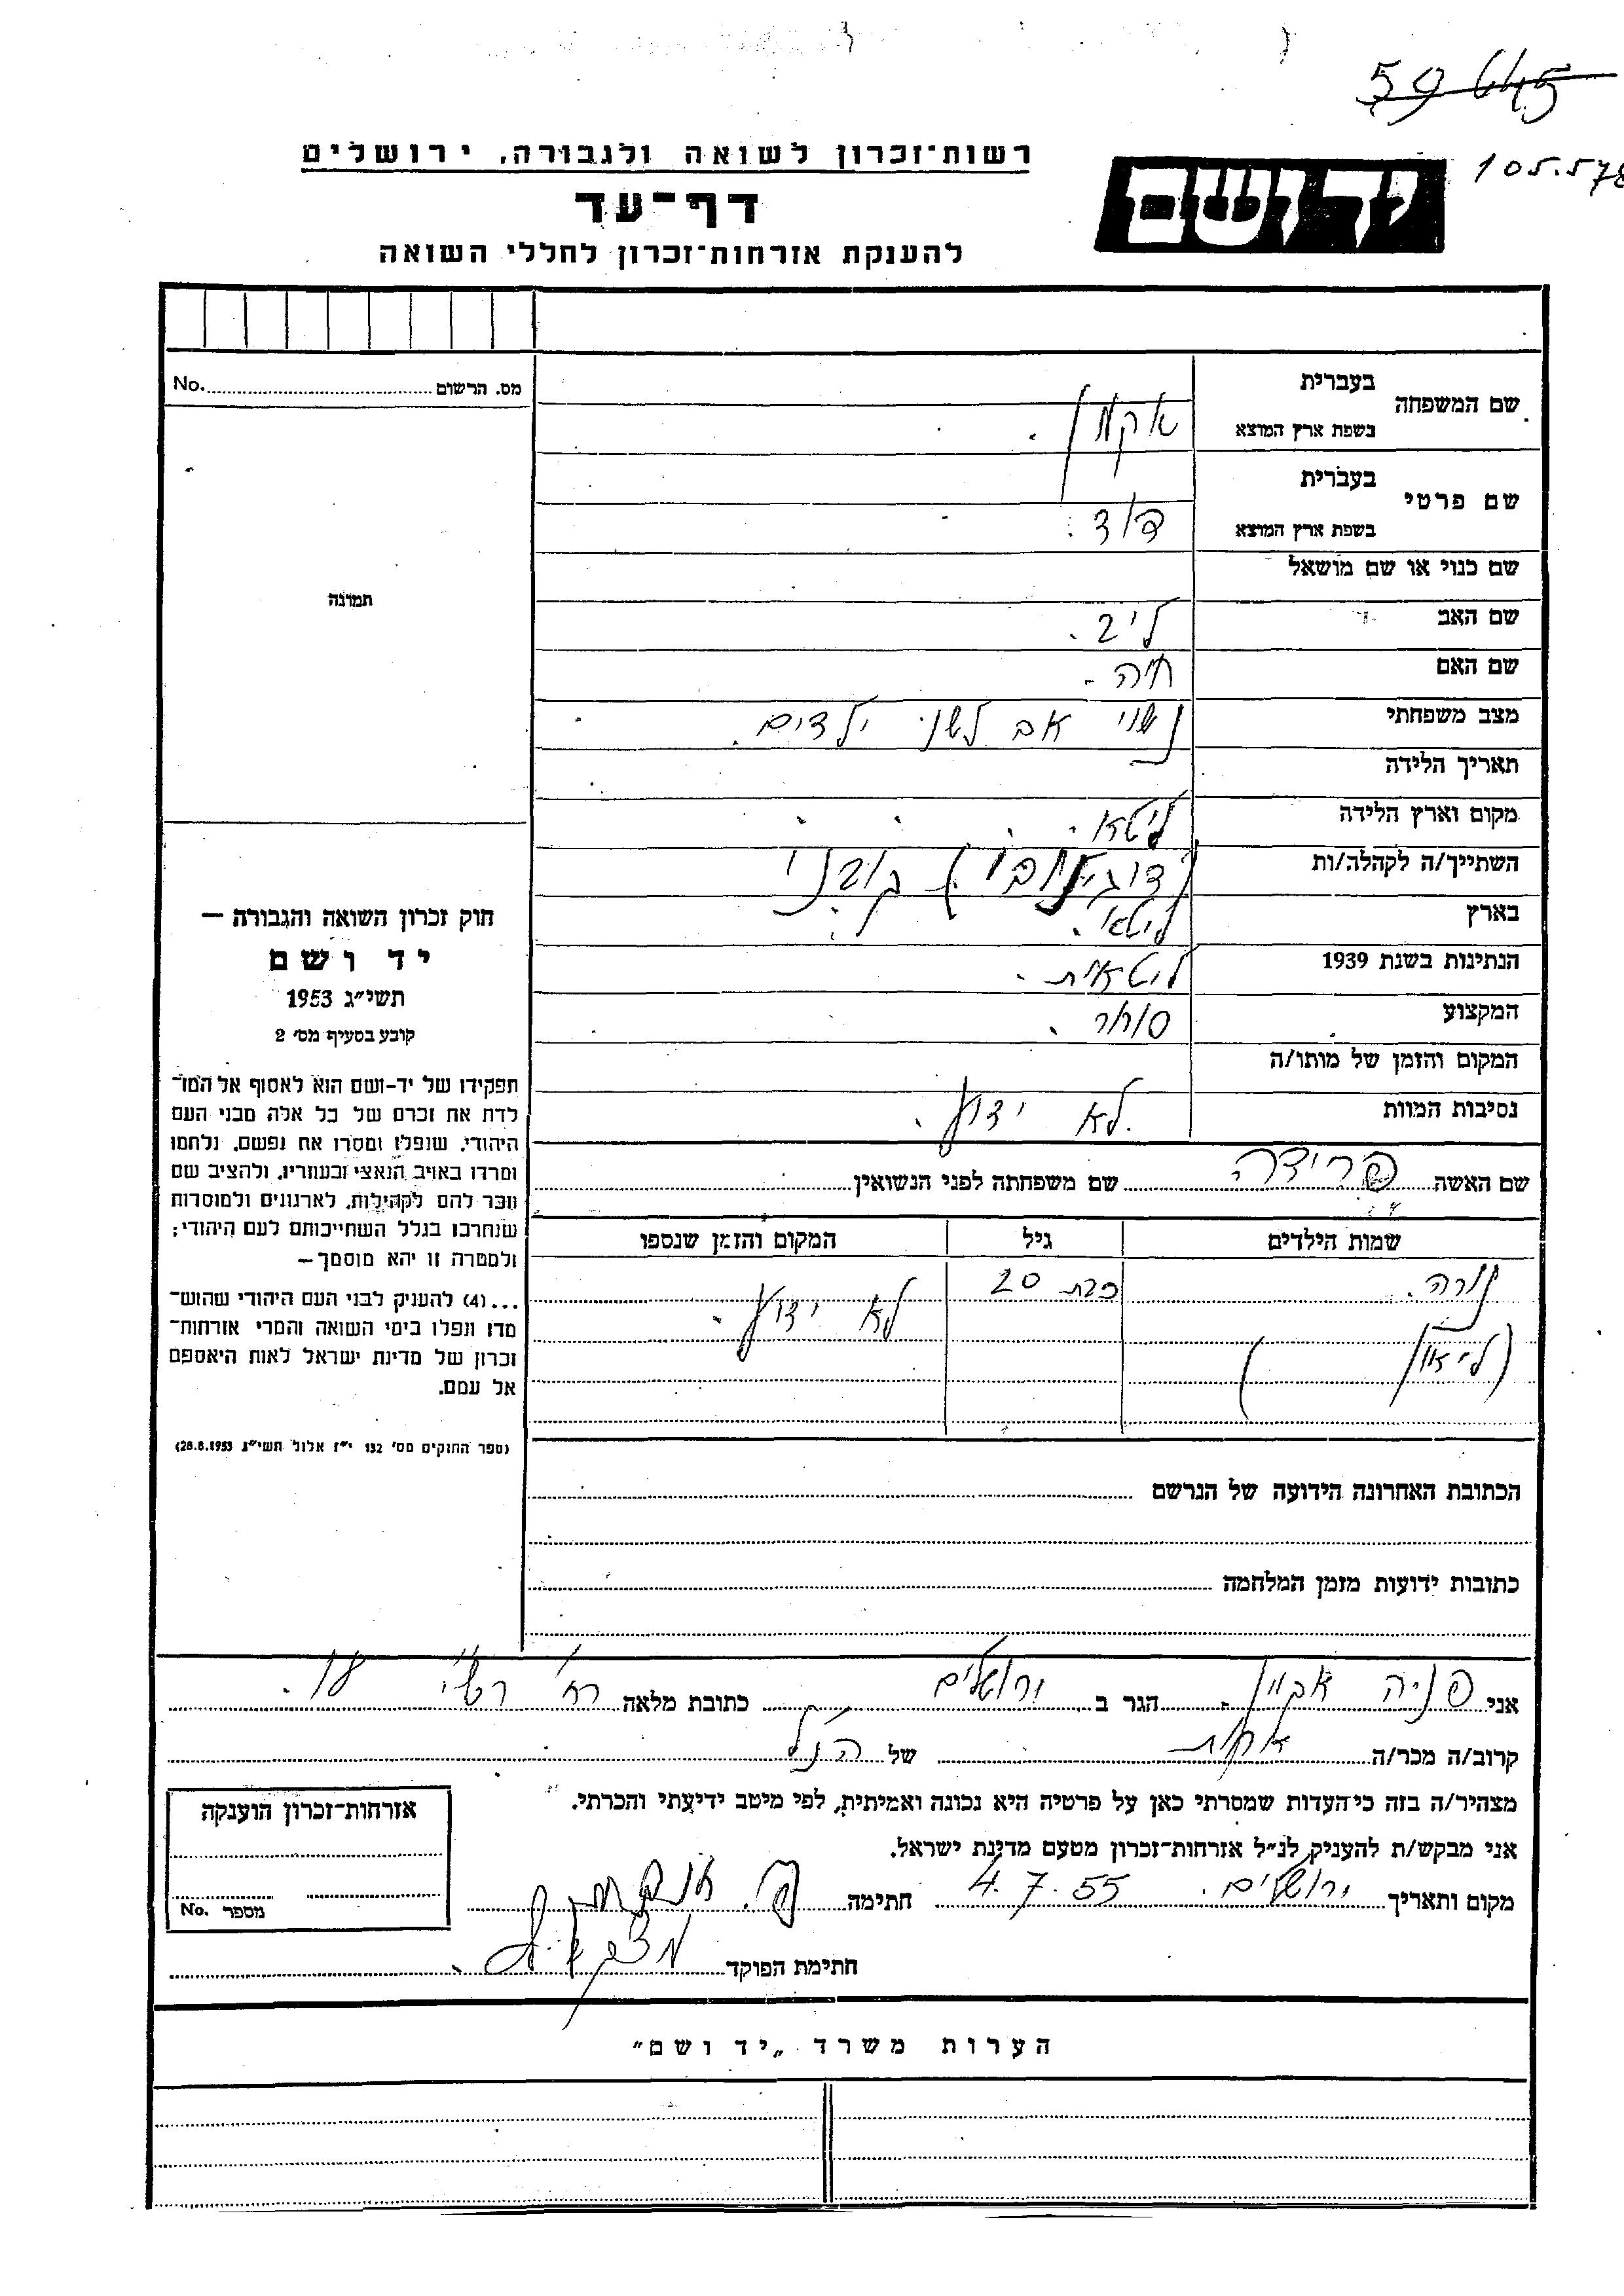 59645
105.578
רשות־זכרון לשואה ולגבורה, ירושלים
יד ושם
דף־עד
להענקת אזרחות־זכרון לחללי השואה
מס. הרשום No.
שם המשפחה
בעברית
בשפת ארץ המוצא
שם פרטי
בעברית
בשפת ארץ המוצא
דוד.
שם כנוי או שם מושאל
שם האב ליב.
שם האם חיה.
מצב משפחתי נשוי אב לשני ילדים.
תאריך הלידה
מקום וארץ הלידה ליטא.
השתייך/ה לקהלה/ות
בארץ ליטא.
הנתינות בשנת 1939 ליטאית.
המקצוע סוחר.
המקום והזמן של מותו/ה
נסיבות המוות לא ידוע.
תמונה
חוק זכרון השואה והגבורה —
יד ושם
תשי״ג 1953
קובע בסעיף מס׳ 2
תפקידו של יד-ושם הוא לאסוף אל המו־
לדת את זכרם של כל אלה מבני העם
היהודי, שנפלו ומסרו את נפשם, נלחמו
ומרדו באויב הנאצי ובעוזריו, ולהציב שם
וזכר להם לקהילות, לארגונים ולמוסדות
שנחרבו בגלל השתייכותם לעם היהודי;
ולמטרה זו יהא מוסמך —
...(4) להעניק לבני העם היהודי שהוש־
מדו ונפלו בימי השואה והמרי אזרחות־
זכרון של מדינת ישראל לאות היאספם
אל עמם.
(ספר החוקים מס׳ 132 י״ז אלול תשי״ג 28.8.1953)
שם האשה פרידה. שם משפחתה לפני הנשואין
שמות הילדים גיל המקום והזמן שנספו
נורה. כבת 20 לא ידוע.
הכתובת האחרונה הידועה של הנרשם
כתובות ידועות מזמן המלחמה
אני פניה הגר ב ירושלים כתובת מלאה רח׳ רש״י
קרוב/ה מכר/ה אחות של הנ״ל
מצהיר/ה בזה כי העדות שמסרתי כאן על פרטיה היא נכונה ואמיתית, לפי מיטב ידיעתי והכרתי.
אני מבקש/ת להעניק לנ״ל אזרחות־זכרון מטעם מדינת ישראל.
מקום ותאריך ירושלים. 4.7.55 חתימה
חתימת הפוקד
אזרחות־זכרון הוענקה
מספר No.
הערות משרד „יד ושם״